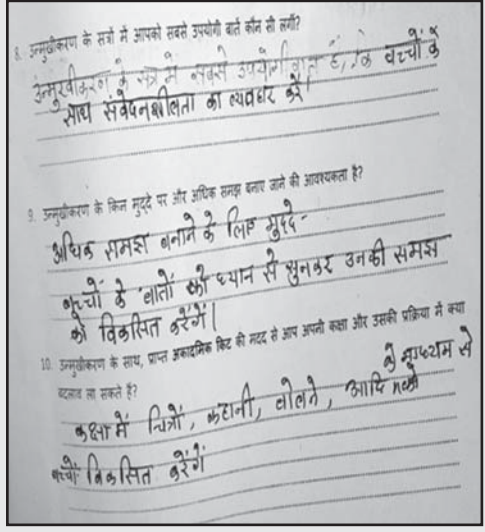 8. उन्मुखीकरण के सत्रों में आपको सबसे उपयोगी बातें कौन सी लगीं?
उन्मुखीकरण के सत्र में सबसे उपयोगी बात है, कि बच्चों के
साथ संवेदनशीलता का व्यवहार करें।
9. उन्मुखीकरण के किन मुद्दे पर और अधिक समझ बनाए जाने की आवश्यकता है?
अधिक समझ बनाने के लिए मुद्दे -
बच्चों के बातों को ध्यान से सुनकर उनकी समझ
को विकसित करेंगें।
10. उन्मुखीकरण के साथ, प्राप्त अकादमिक किट की मदद से आप अपनी कक्षा और उसकी प्रक्रिया में क्या
बदलाव ला सकते है?
के माध्यम से
कक्षा में चित्रों, कहानी, बोलने, आदि
बच्चों विकसित करेंगें